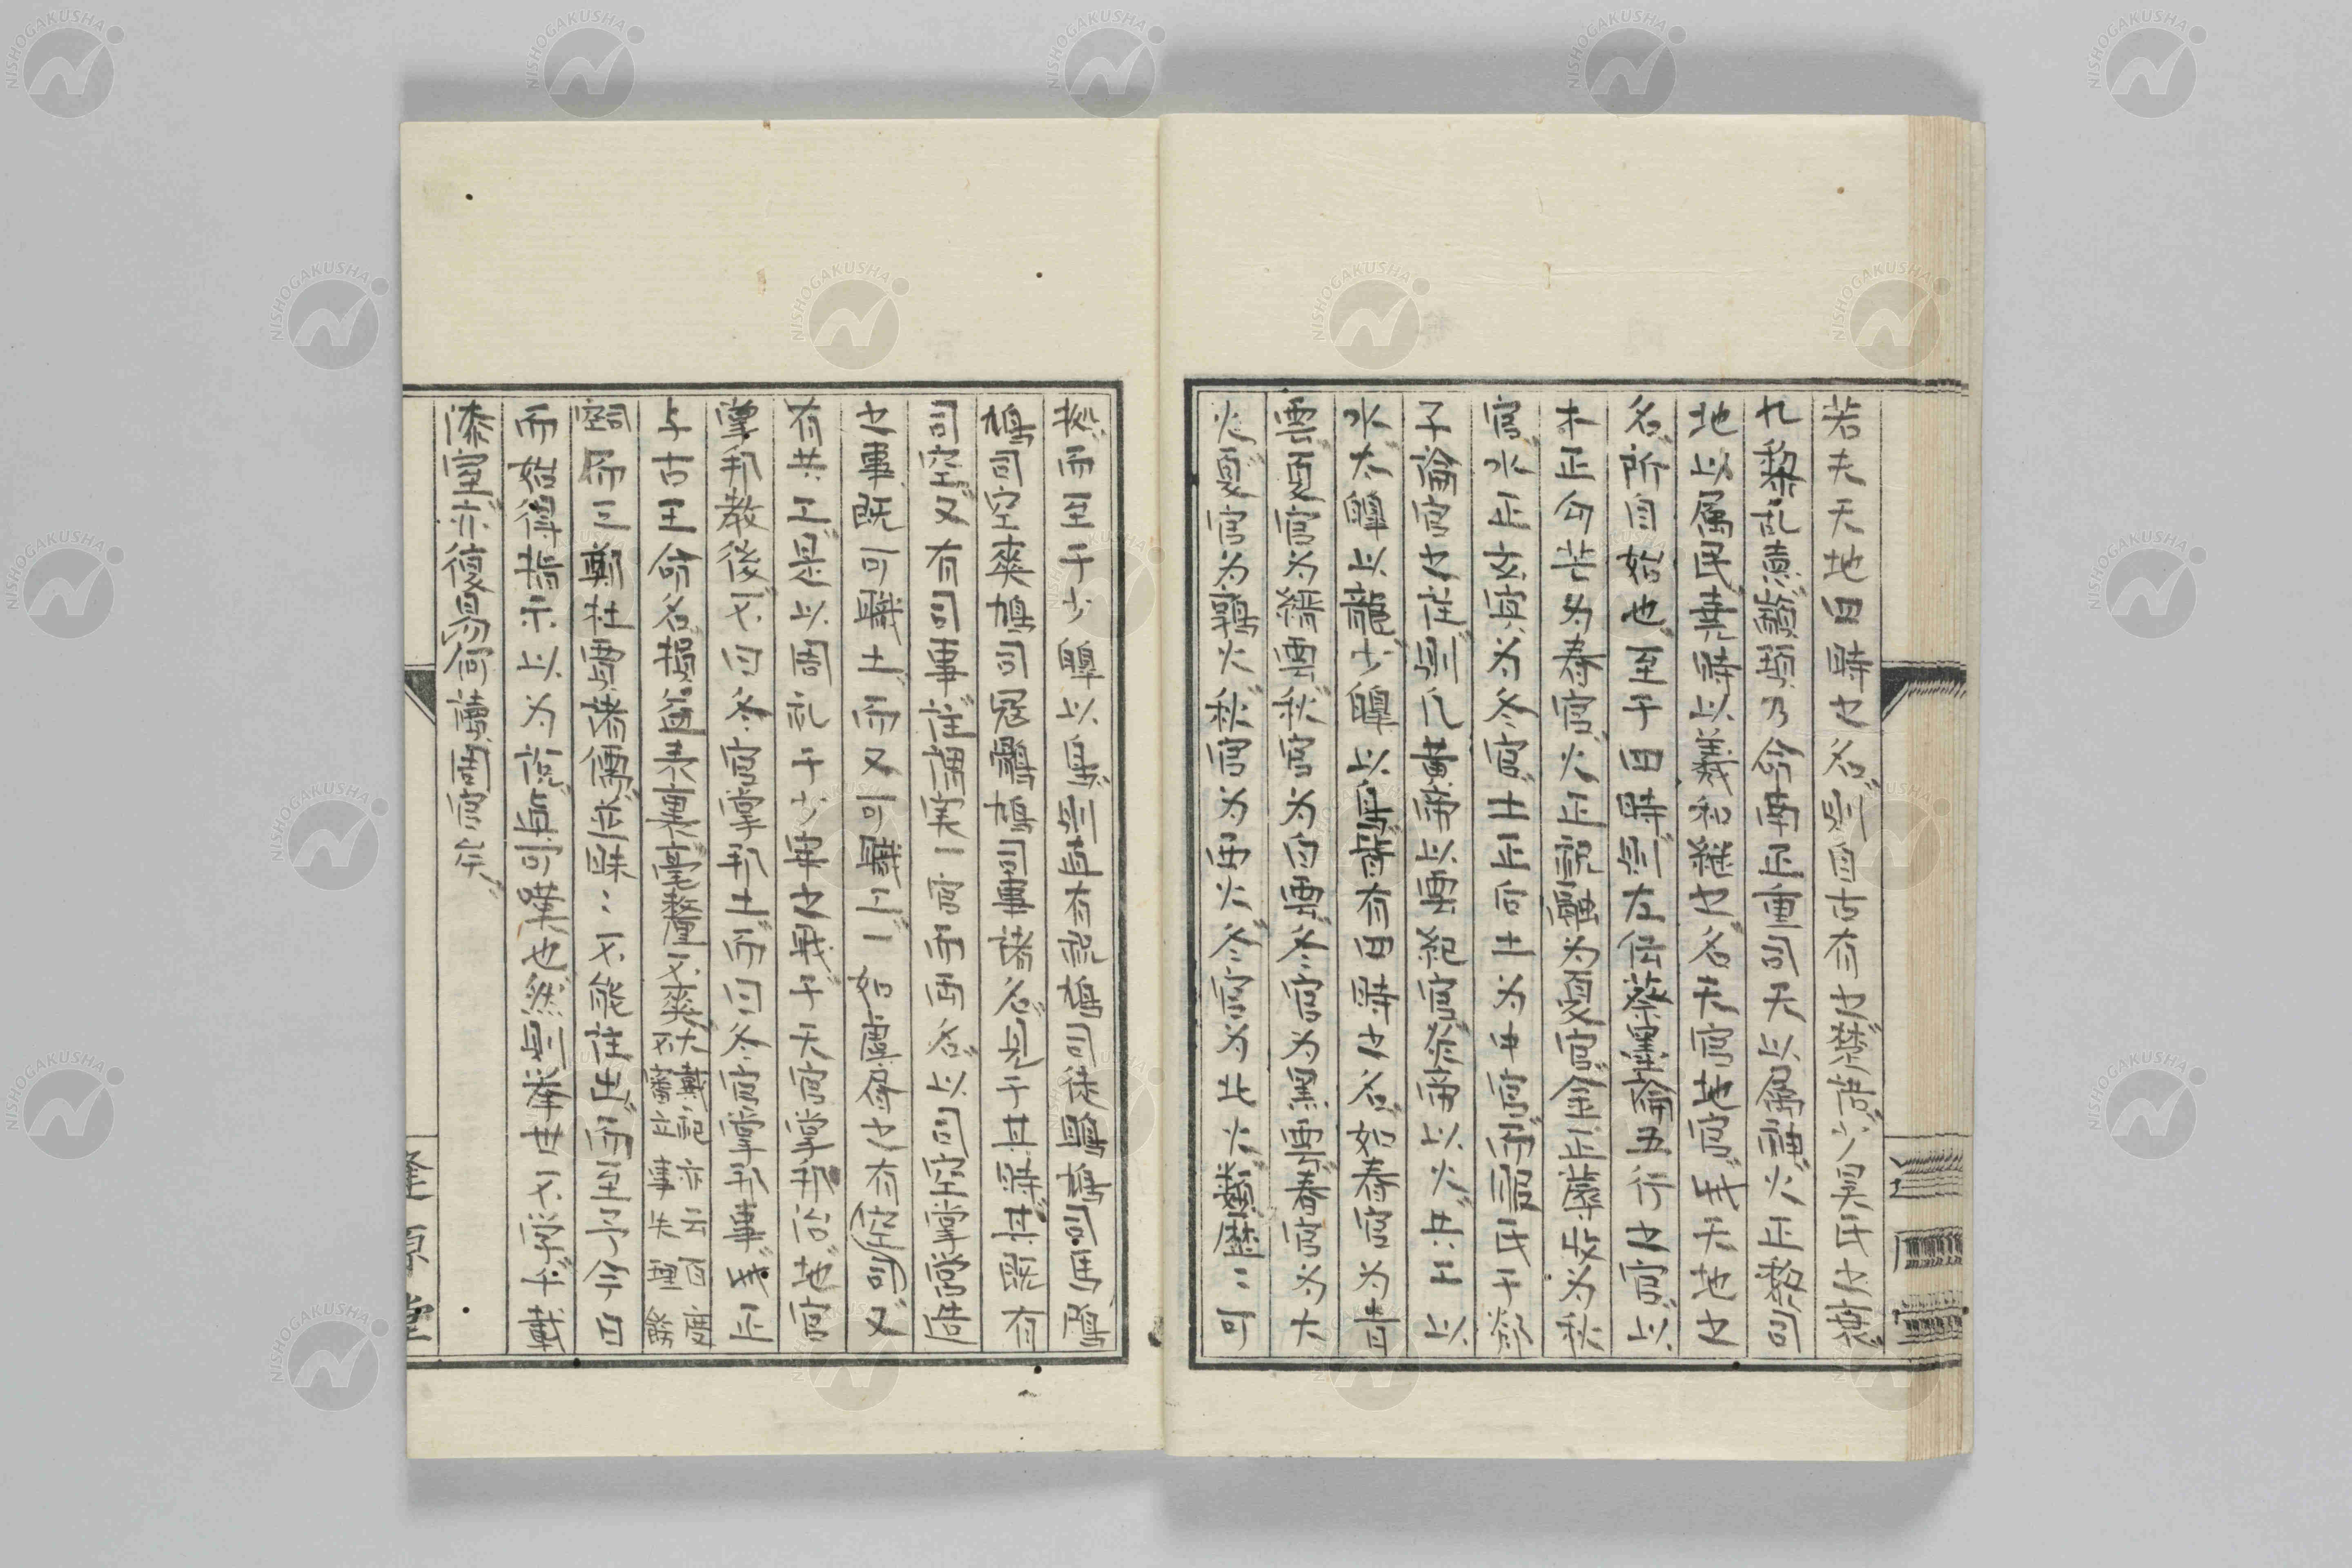 若夫天地四時之名則自古有之楚語少昊氏之衰
九黎乱德顓頊乃命南正重司天以属神火正黎司
地以属民堯時以羲和継之名天官地官我天地之
名所自始也至于四時則左伝蔡墨論五行之官以
木正句芒为春官火正祝融为夏官金正蓐收为秋
官水正玄冥为冬官土正后土为中官而服氏于郯
子論官之注則化黄帝以雲紀官炎帝以火共工以
水太皥以龍少皥以鳥皆有四時之名如春官为青
雲夏官为縉雲秋官为白雲冬官为黒雲春官为大
火夏官为鶉火秋官为西火冬官为北火載歴〻可
拠而至于少皥以鳥則直有祝鳩司徒鴡鳩司馬鳲
鳩司空爽鳩司寇鶻鳩司事諸名見于其時其既有
司空又有司事注謂実一官而両名以司空掌営造
之事既可職土而又可職工一如虞廷之有空司又
有共工是以周礼于少宰之職于天官掌邦治地官
掌邦教後不曰冬官掌邦土而曰冬官掌邦事我正
与古王命名損益表裏毫釐不爽大戴記亦云百度不審立事失理
詞而三鄭杜賈諸儒亦昧〻不能注出而至于今日
而始得揭示以为説真可嘆也然則挙世不学千載
漆室亦復易何讀周官矣